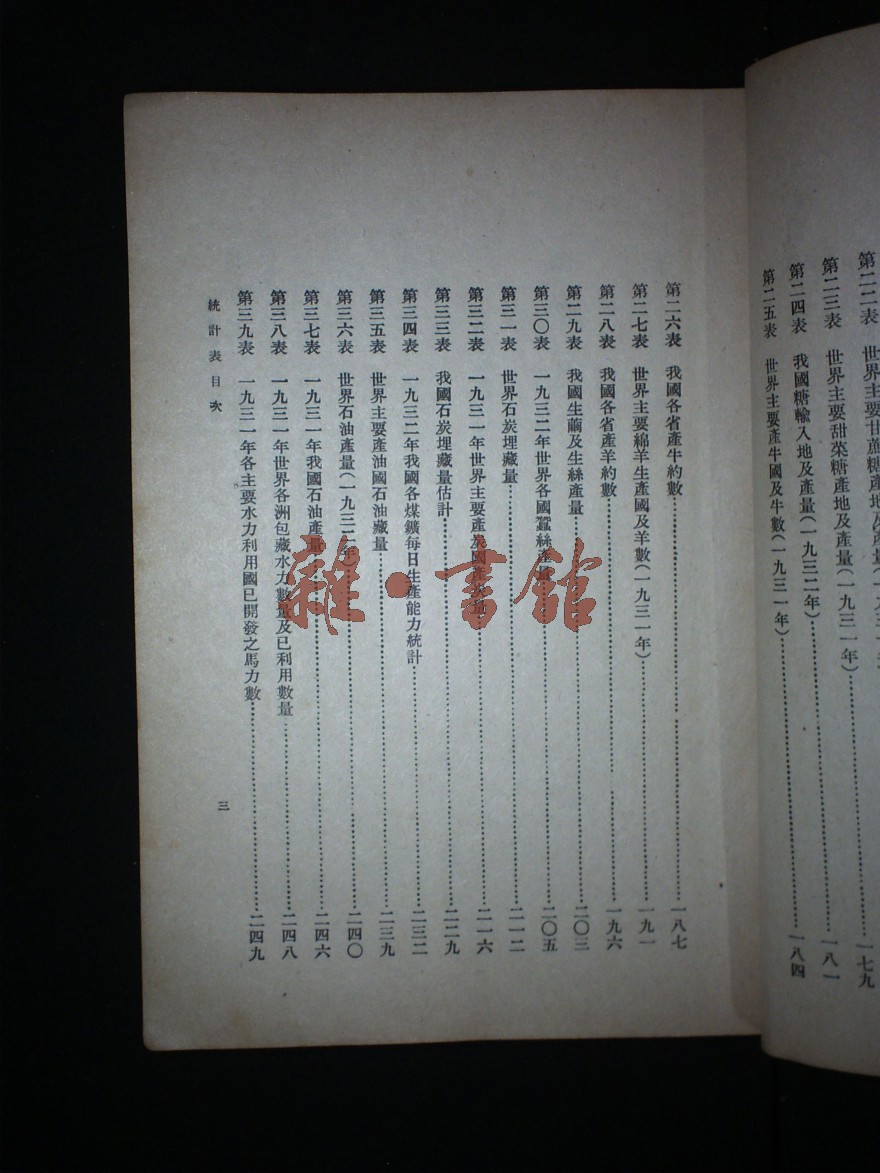 第二二表 世界主要甘蔗糖產地及產量(一九三一年
一七九
第二三表 世界主要甜菜糖產地及產量(一九三一年)……一八一
第二四表 我國糖輸入地及產量(一九三二年)……一八四
第二五表 世界主要產牛國及牛數(一九三一年)
第二六表 我國各省產牛約數……一八七
第二七表 世界主要綿羊生產國及羊數(一九三一年)……一九一
第二八表 我國各省產羊約數……一九六
第二九表 我國生繭及生絲產量……二〇三
第三〇表 一九三二年世界各國蠶絲產量……二〇五
第三一表 世界石炭埋藏量……二一二
第三二表 一九三一年世界主要產炭國產炭量……二一六
第三三表 我國石炭埋藏量估計……二二九
第三四表 一九三二年我國各煤鑛每日生產能力統計……二三二
第三五表 世界主要產油國石油藏量……二三九
第三六表 世界石油產量(一九三二年)……二四〇
第三七表 一九三一年我國石油產量……二四六
第三八表 一九三一年世界各洲包藏水力數量及已利用數量……二四八
第三九表 一九三一年各主要水力利用國已開發之馬力數……二四九
統計表目次
三
雜·書館